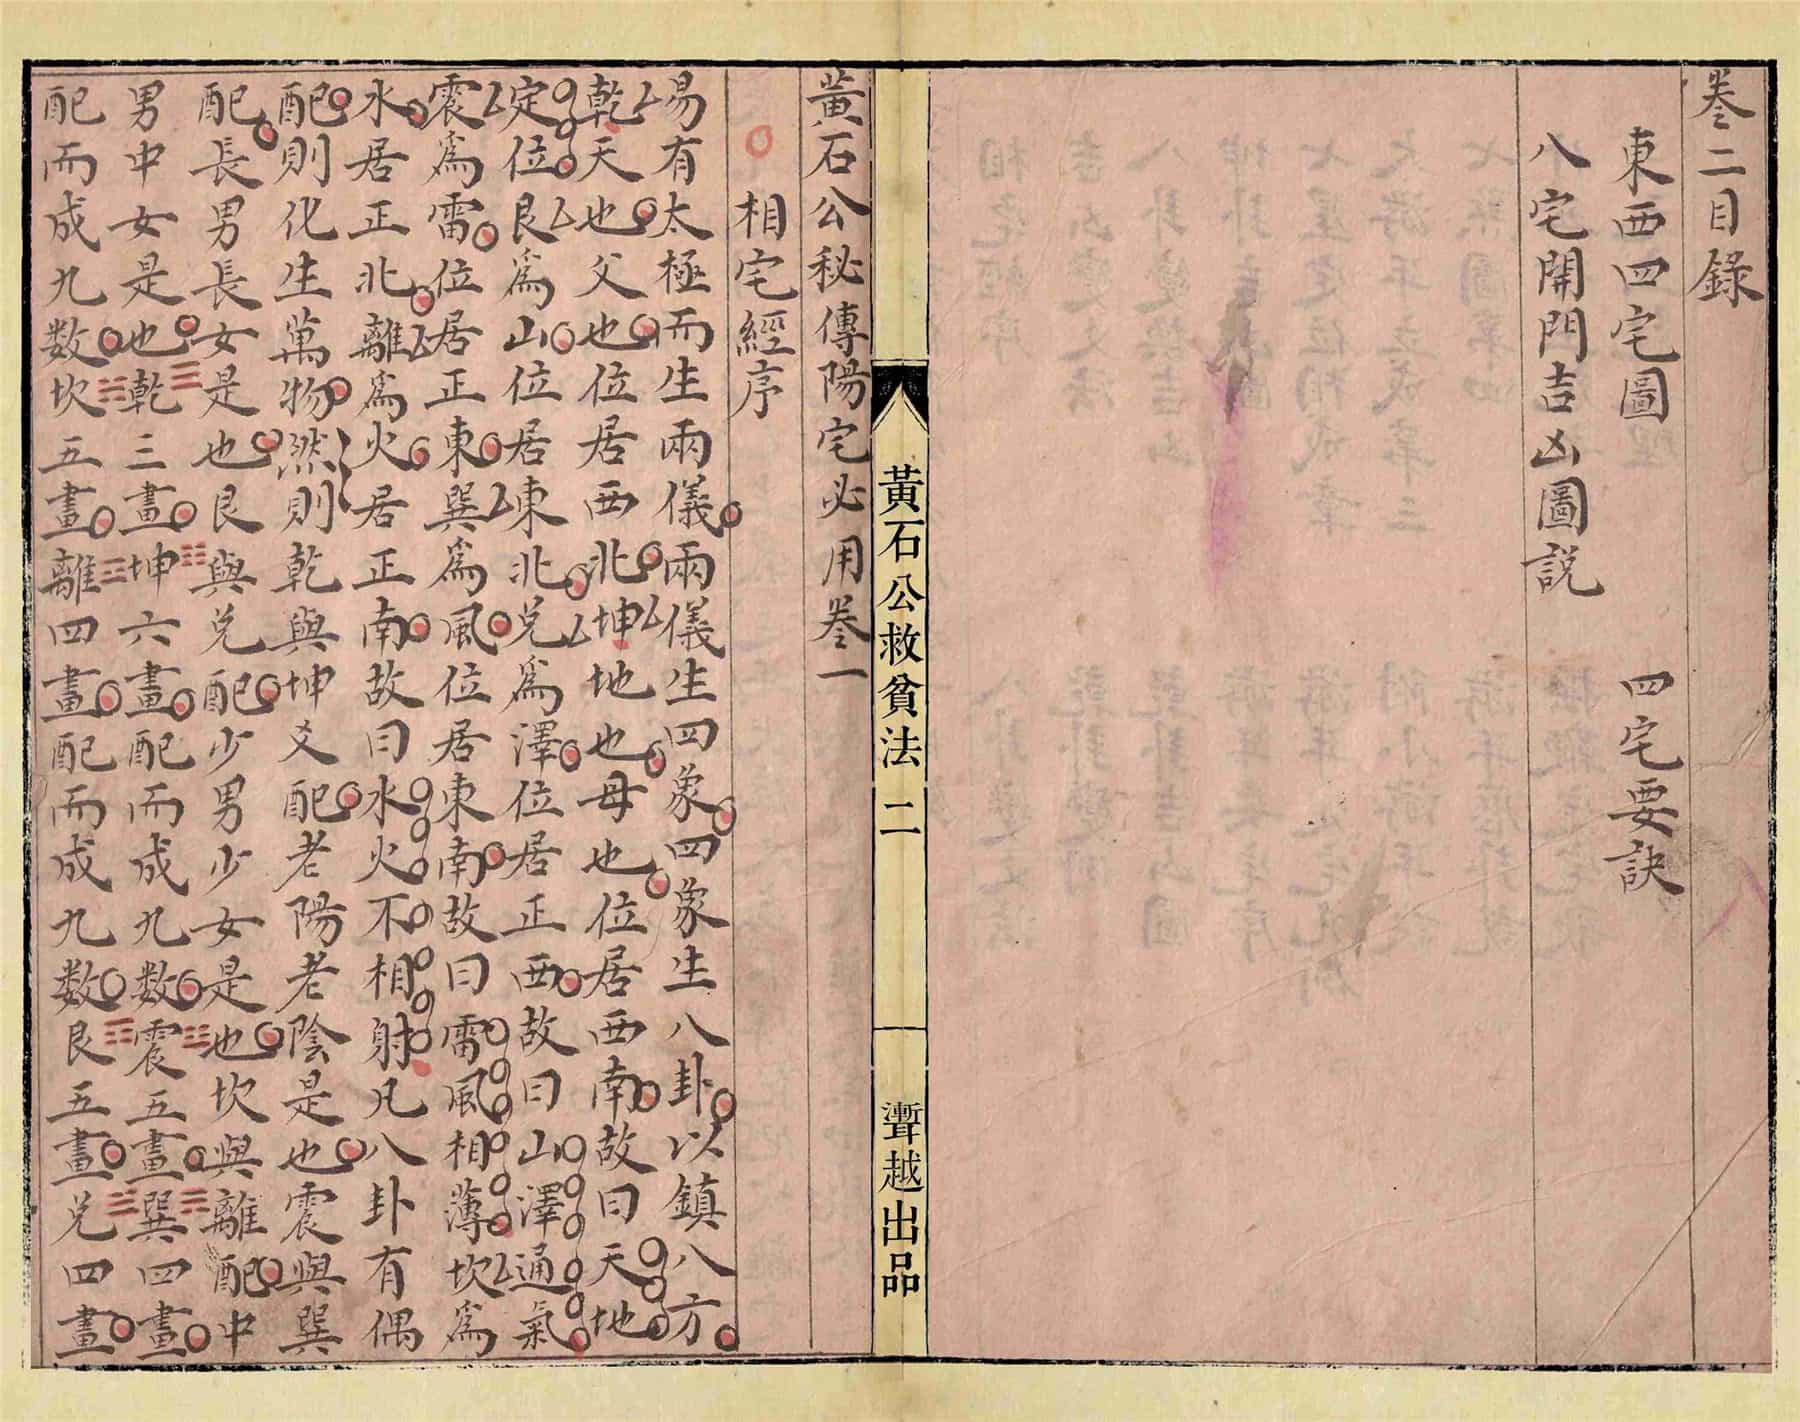 卷二目錄
東西四宅圖 四宅要訣
八宅開門吉凶圖説
黃石公救貧法 二 漸聳越出品
黃石公秘傳陽宅必用卷一
相宅經序
易有太極而生兩儀兩儀生四象四象生八卦以鎮八方
乾天也父也位居西北坤地也母也位居西南故曰天地
定位艮為山位居東北兌為澤位居正西故曰山澤通氣
震為雷位居正東巽為風位居東南故曰雷風相薄坎為
水居正北離為火居正南故曰水火不相射凡八卦有偶
配則化生萬物然則乾與坤爻配老陽老陰是也震與巽
配長男長女是也艮與兌配少男少女是也坎與離配中
男中女是也乾三畫坤六畫配而成九数震五畫巽四畫
配而成九数坎五畫離四畫配而成九数艮五畫兌四畫